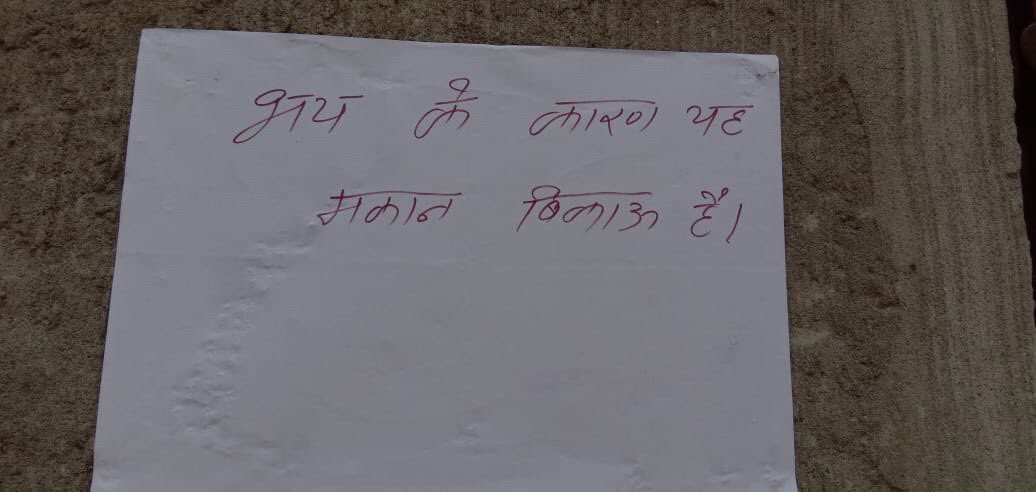 भय के कारण यह
मकान बिकाऊ है।